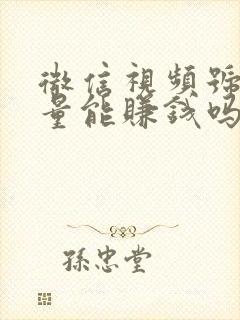 微信視頻號
量能賺錢吗
孫忠堂